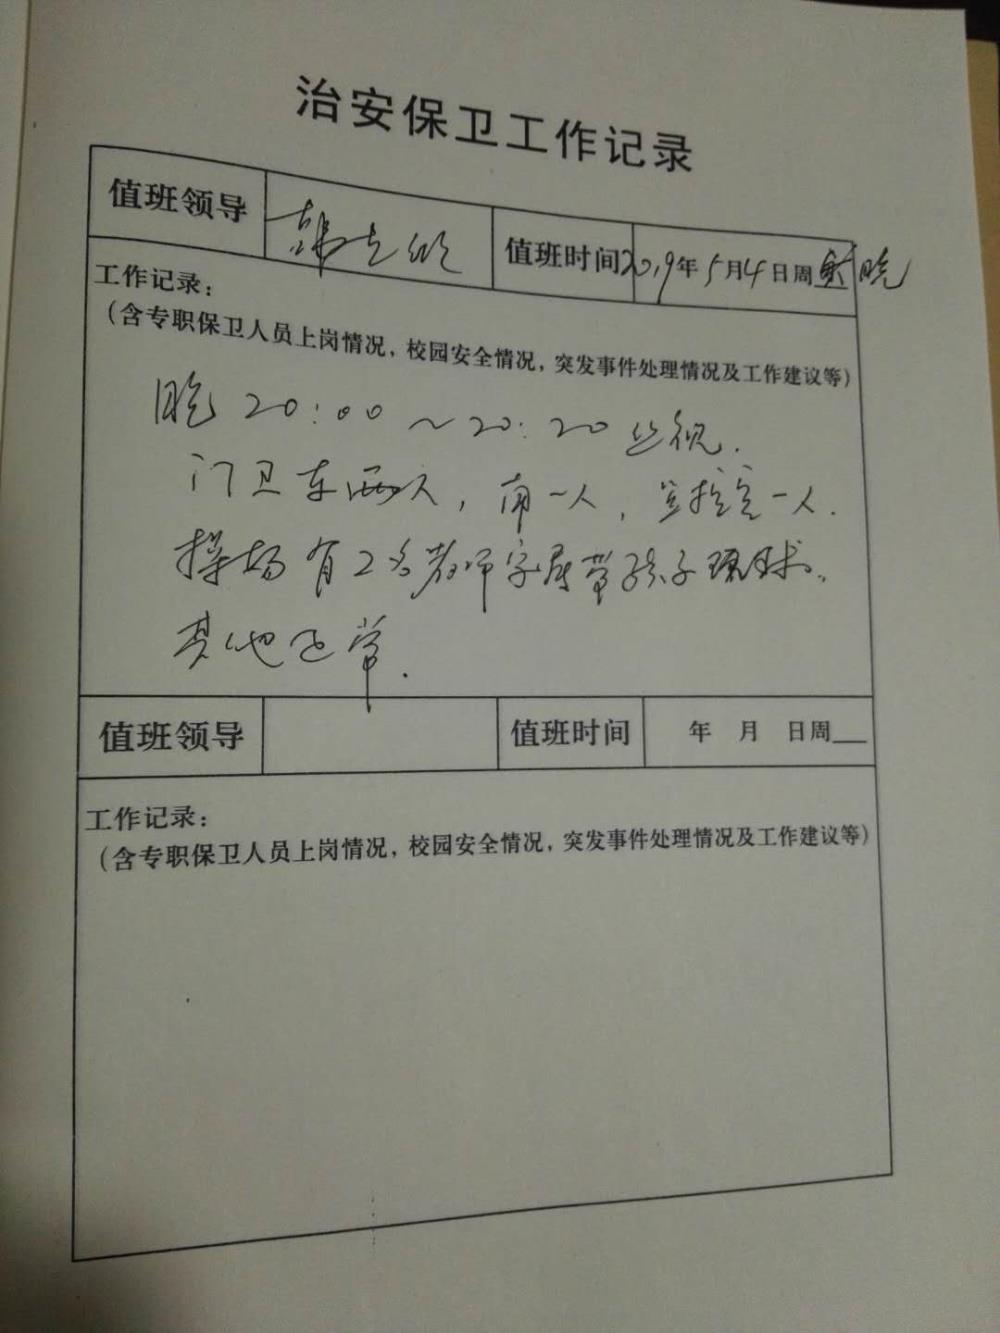 治安保卫工作记录
值班领导 韩立 值班时间 2019年5月4日周 晚
工作记录：
（含专职保卫人员上岗情况，校园安全情况，突发事件处理情况及工作建议等）
晚20:00～20:20巡视.
门卫东两人，南一人，监控室一人.
操场有2名教师家属带孩子踢球.
其他正常.
值班领导 值班时间 年 月 日周
工作记录：
（含专职保卫人员上岗情况，校园安全情况，突发事件处理情况及工作建议等）